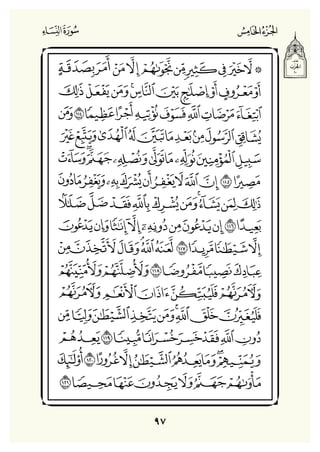 سُورَةُ النِّسَاءِ
الجُزْءُ الخَامِسُ
۞ لَّا خَيْرَ فِي كَثِيرٍ مِّن نَّجْوَىٰهُمْ إِلَّا مَنْ أَمَرَ بِصَدَقَةٍ
أَوْ مَعْرُوفٍ أَوْ إِصْلَٰحٍۭ بَيْنَ ٱلنَّاسِ ۚ وَمَن يَفْعَلْ ذَٰلِكَ
ٱبْتِغَآءَ مَرْضَاتِ ٱللَّهِ فَسَوْفَ نُؤْتِيهِ أَجْرًا عَظِيمًا ١١٤ وَمَن
يُشَاقِقِ ٱلرَّسُولَ مِنۢ بَعْدِ مَا تَبَيَّنَ لَهُ ٱلْهُدَىٰ وَيَتَّبِعْ غَيْرَ
سَبِيلِ ٱلْمُؤْمِنِينَ نُوَلِّهِۦ مَا تَوَلَّىٰ وَنُصْلِهِۦ جَهَنَّمَ ۖ وَسَآءَتْ
مَصِيرًا ١١٥ إِنَّ ٱللَّهَ لَا يَغْفِرُ أَن يُشْرَكَ بِهِۦ وَيَغْفِرُ مَا دُونَ
ذَٰلِكَ لِمَن يَشَآءُ ۚ وَمَن يُشْرِكْ بِٱللَّهِ فَقَدْ ضَلَّ ضَلَٰلًۢا
بَعِيدًا ١١٦ إِن يَدْعُونَ مِن دُونِهِۦٓ إِلَّآ إِنَٰثًا وَإِن يَدْعُونَ
إِلَّا شَيْطَٰنًا مَّرِيدًا ١١٧ لَّعَنَهُ ٱللَّهُ ۘ وَقَالَ لَأَتَّخِذَنَّ مِنْ
عِبَادِكَ نَصِيبًا مَّفْرُوضًا ١١٨ وَلَأُضِلَّنَّهُمْ وَلَأُمَنِّيَنَّهُمْ
وَلَءَامُرَنَّهُمْ فَلَيُبَتِّكُنَّ ءَاذَانَ ٱلْأَنْعَٰمِ وَلَءَامُرَنَّهُمْ
فَلَيُغَيِّرُنَّ خَلْقَ ٱللَّهِ ۚ وَمَن يَتَّخِذِ ٱلشَّيْطَٰنَ وَلِيًّا مِّن
دُونِ ٱللَّهِ فَقَدْ خَسِرَ خُسْرَانًا مُّبِينًا ١١٩ يَعِدُهُمْ
وَيُمَنِّيهِمْ ۖ وَمَا يَعِدُهُمُ ٱلشَّيْطَٰنُ إِلَّا غُرُورًا ١٢٠ أُو۟لَٰٓئِكَ
مَأْوَىٰهُمْ جَهَنَّمُ وَلَا يَجِدُونَ عَنْهَا مَحِيصًا ١٢١
٩٧